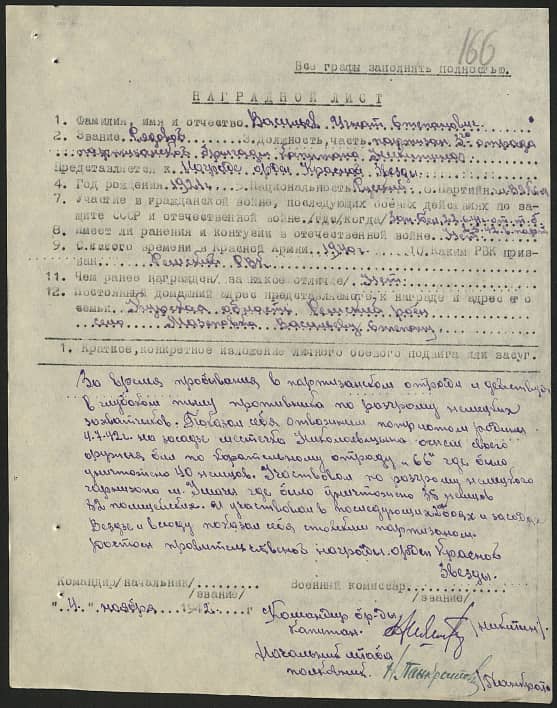 166
Все графы заполнять полностью.
НАГРАДНОЙ ЛИСТ
1. Фамилия, имя и отчество Васильев Игнат Степанович
2. Звание Рядовой 3. Должность, часть партизан 2го отряда
партизанской бригады капитана Никитина
Представляется к Награде орден Красной Звезды
4. Год рождения 1921г. Национальность Русский 6. Партийн.
7. Участие в гражданской войне, последующих боевых действиях по за-
щите СССР и отечественной войне /где/когда/
8. Имеет ли ранения и контузии в отечественной войне. Нет.
9. С какого времени в Красной Армии. 1940г. 10. Каким РВК приз-
ван. РВК
11. Чем ранее награжден/за какое отличие/ Нет
12. Постоянный домашний адрес представляемого к награде и адрес его
семьи. область район
село Васильеву Степану
1. Краткое, конкретное изложение личного боевого подвига или заслуг.
За время пребывания в партизанском отряде и действуя
в глубоком тылу противника по разгрому немецких
захватчиков. Показал себя отважным патриотом родины
4.7.42г. на засаде местечка Николаевщина огнем своего
оружия бил по карательному отряду „66" где было
уничтожено 40 немцев. Участвовал по разгрому немецкого
гарнизона м. где было уничтожено 36 немцев
32 полицейских. И участвовал в последующих боях и засадах.
Везде и всюду показал себя стойким партизаном.
Достоин правительственной награды орден Красной
Звезды.
Командир/начальник/ Военный комиссар
/звание/ /звание/
" 11 " ноября 1942 г. Командир бр-ды
капитан. /Никитин/
Начальник штаба
полковник. Н. Панкратов /Панкратов